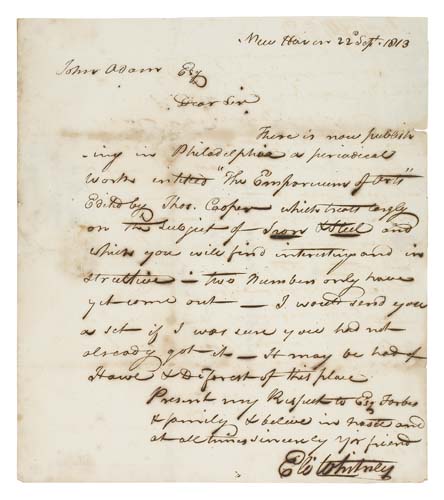 New Haven 22d Sept. 1813
John Adam Esq
Dear Sir
There is now publish
ing in Philadelphia a periodical
Work entitled "The Emporium of Arts"
Edited by Thos. Cooper which treats largly
on the subject of Iron & Steel and
which you will find interesting and in
structive — two Numbers only have
yet come out — I would send you
a set if I was sure you had not
already got it — It may be had of
Howe & Deforest of this place
Present my Respect to Esq Forbes
& family & believe in haste and
at all times sincerely Yor friend
Eli Whitney